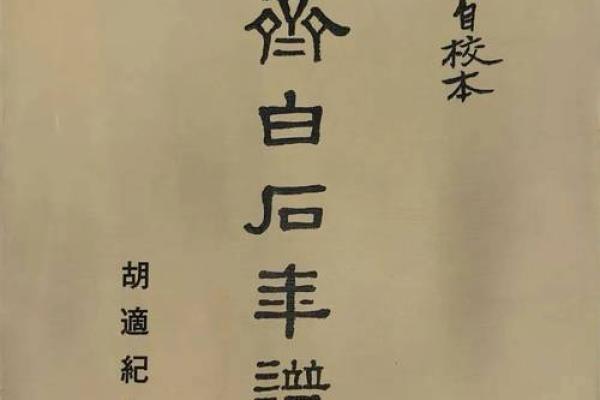 自校本
齊白石年譜
胡適紀